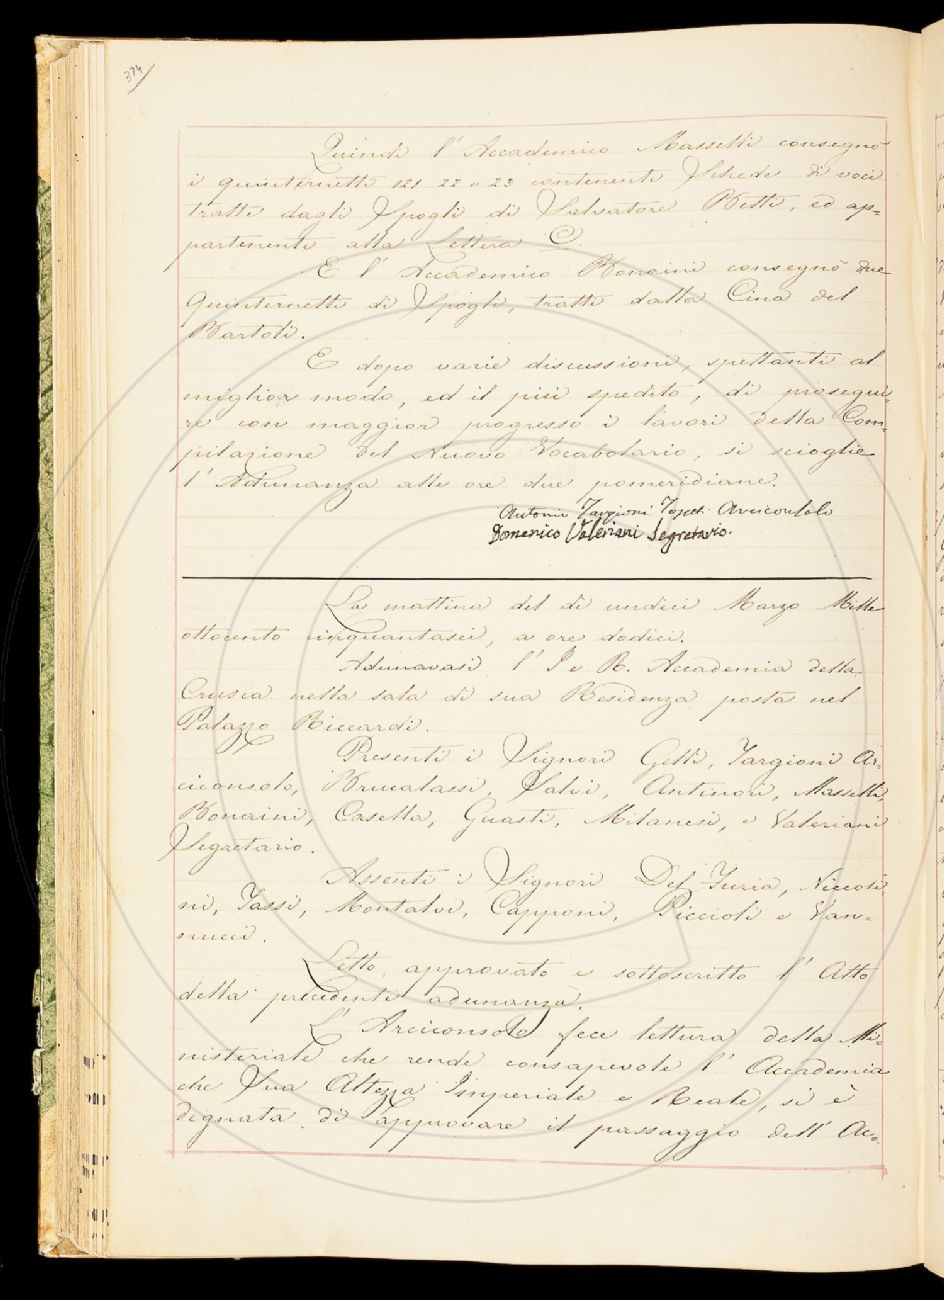 374
Quindi l' Accademico Masselli consegnò
i quinternetti 121 22 e 23 contenenti Schede di voci
tratte dagli Spogli di Salvatore Betti, ed ap=
partenenti alla Lettera C.
E l' Accademico Bonaini consegnò due
Quinternetti di Spogli, tratti dalla Cina del
Bartoli.
E dopo varie discussioni, spettanti al
miglior modo, ed il più spedito, di prosegui=
re con maggior progresso i lavori della Com=
pilazione del Nuovo Vocabolario, si scioglie
l' Adunanza alle ore due pomeridiane.
Antonio Targioni Tozzetti Arciconsolo
Domenico Valeriani Segretario.
La mattina del dì undici Marzo Mille
ottocento cinquantasei, a ore dodici.
Adunavasi l' I e R. Accademia della
Crusca nella sala di sua Residenza posta nel
Palazzo Riccardi.
Presenti i Signori Gelli, Targioni Ar=
ciconsolo, Brucalassi, Salvi, Antinori, Masselli,
Bonaini, Casella, Guasti, Milanesi, e Valeriani
Segretario.
Assenti i Signori Del Furia, Niccoli
ni, Tassi, Montalvi, Capponi, Piccioli e Van=
nucci.
Letto, approvato e sottoscritto l' Atto
della precedente adunanza.
L' Arciconsolo fece lettura della Mi=
nisteriale che rende consapevole l' Accademia
che Sua Altezza Imperiale e Reale, si è
degnata di approvare il passaggio dell' Ac=